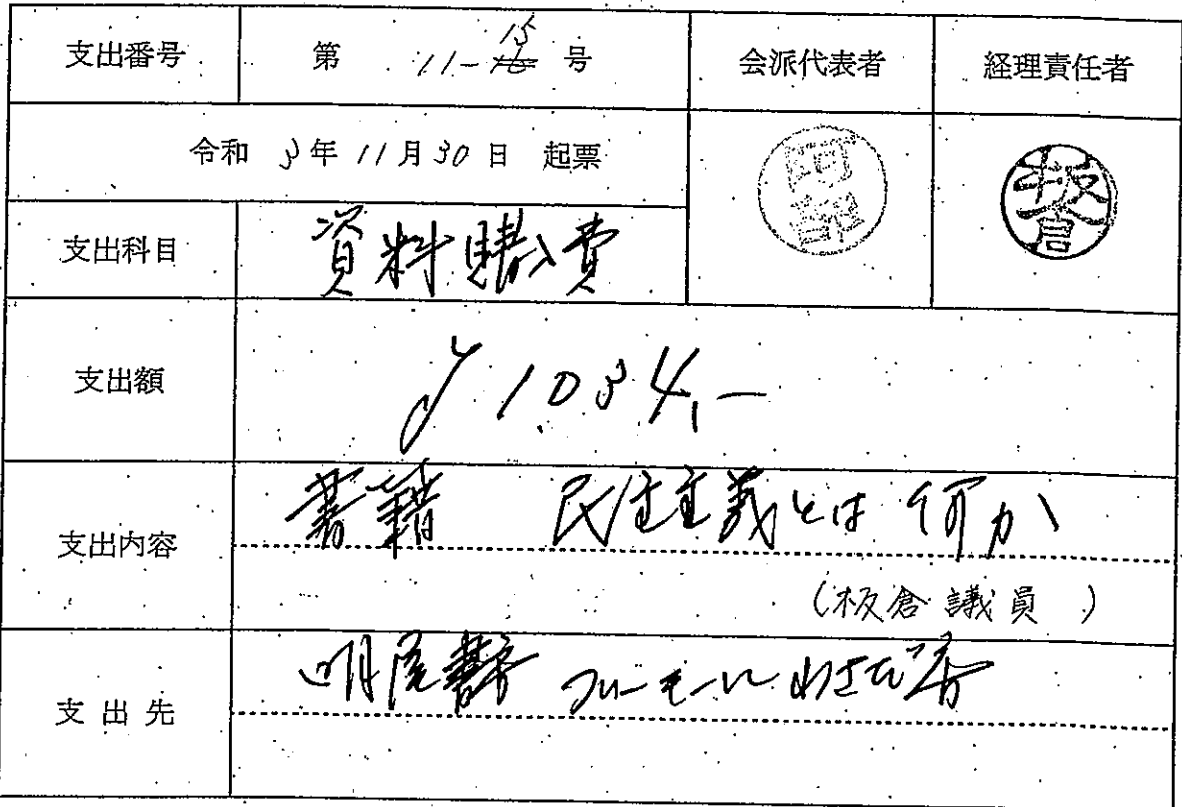 支出番号 第 11-15 号 会派代表者 経理責任者
令和 3年 11月 30日 起票
阿部
板倉
支出科目 資料購入費
支出額 ¥1,034,-
支出内容 書籍 民主主義とは何か
(板倉議員)
支出先 書房